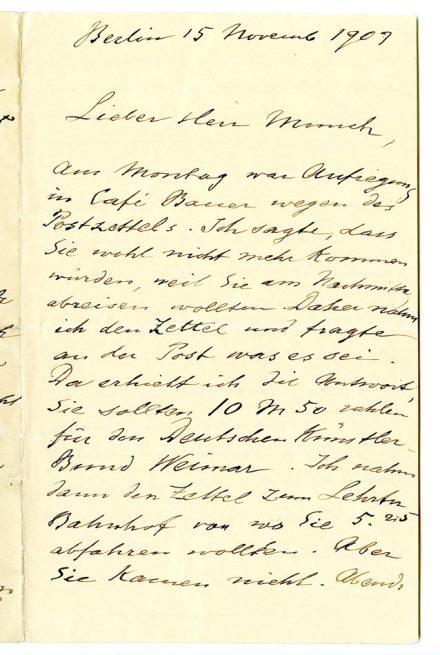 Berlin 15 Novemb 1907
Lieber Herr Munch,
Am Montag war Aufregung
in Café Bauer wegen des
Postzettels. Ich sagte, dass
Sie wohl nicht mehr kommen
würden, weil Sie am Nachmittag
abreisen wollten. Daher nahm
ich den Zettel und fragte
an der Post was es sei.
Da erhielt ich die Antwort,
Sie sollten 10 M 50 zahlen
für den Deutschen Künstler-
Bund Weimar. Ich nahm
dann den Zettel zum Lehrter
Bahnhof von wo Sie 5.25
abfahren wollten. Aber
Sie kamen nicht. Abends